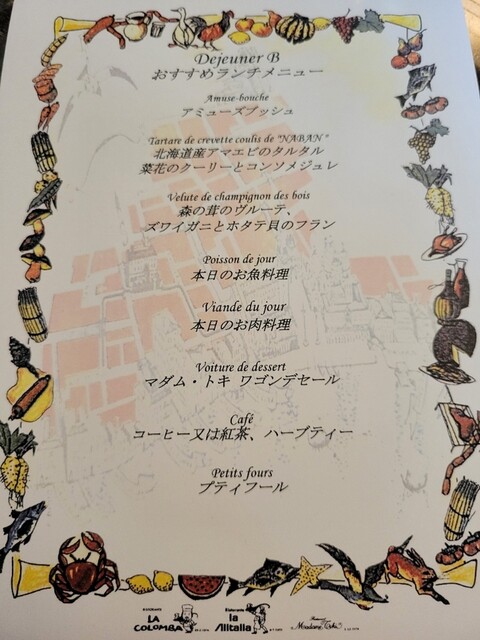 Dejeuner B
おすすめランチメニュー
Amuse-bouche
アミューズブッシュ
Tartare de crevette coulis de "NABAN"
北海道産アマエビのタルタル
菜花のクーリーとコンソメジュレ
Velute de champignon des bois
森の茸のヴルーテ、
ズワイガニとホタテ貝のフラン
Poisson de jour
本日のお魚料理
Viande du jour
本日のお肉料理
Voiture de dessert
マダム・トキ ワゴンデセール
Café
コーヒー又は紅茶、ハーブティー
Petits fours
プティフール
RISTORANTE
LA COLOMBA
Ristorante
la Alitalia
Madame Toki